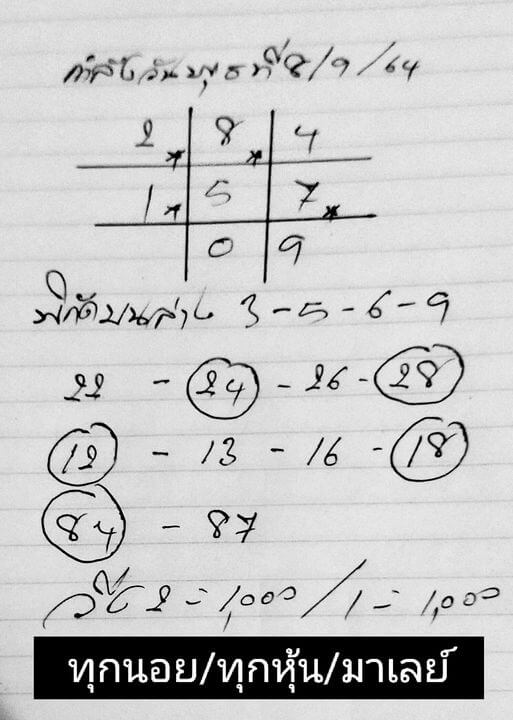 กำลังวันพุธที่ 8/9/64
2* 8* 4
1* 5 7*
0 9
พิกัดบนล่าง 3-5-6-9
22 - 24 - 26 - 28
12 - 13 - 16 - 18
84 - 87
วิ่ง 2 = 1,000 / 1 = 1,000
ทุกนอย/ทุกหุ้น/มาเลย์